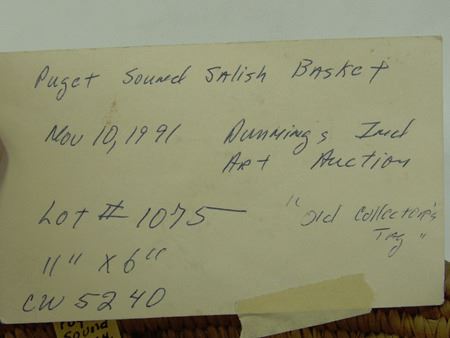 Puget Sound Salish Basket
Nov 10, 1991 Dunning's Ind
Art Auction
Lot # 1075 "Old Collector's
Tag"
11" X 6"
CW 5240
Sound